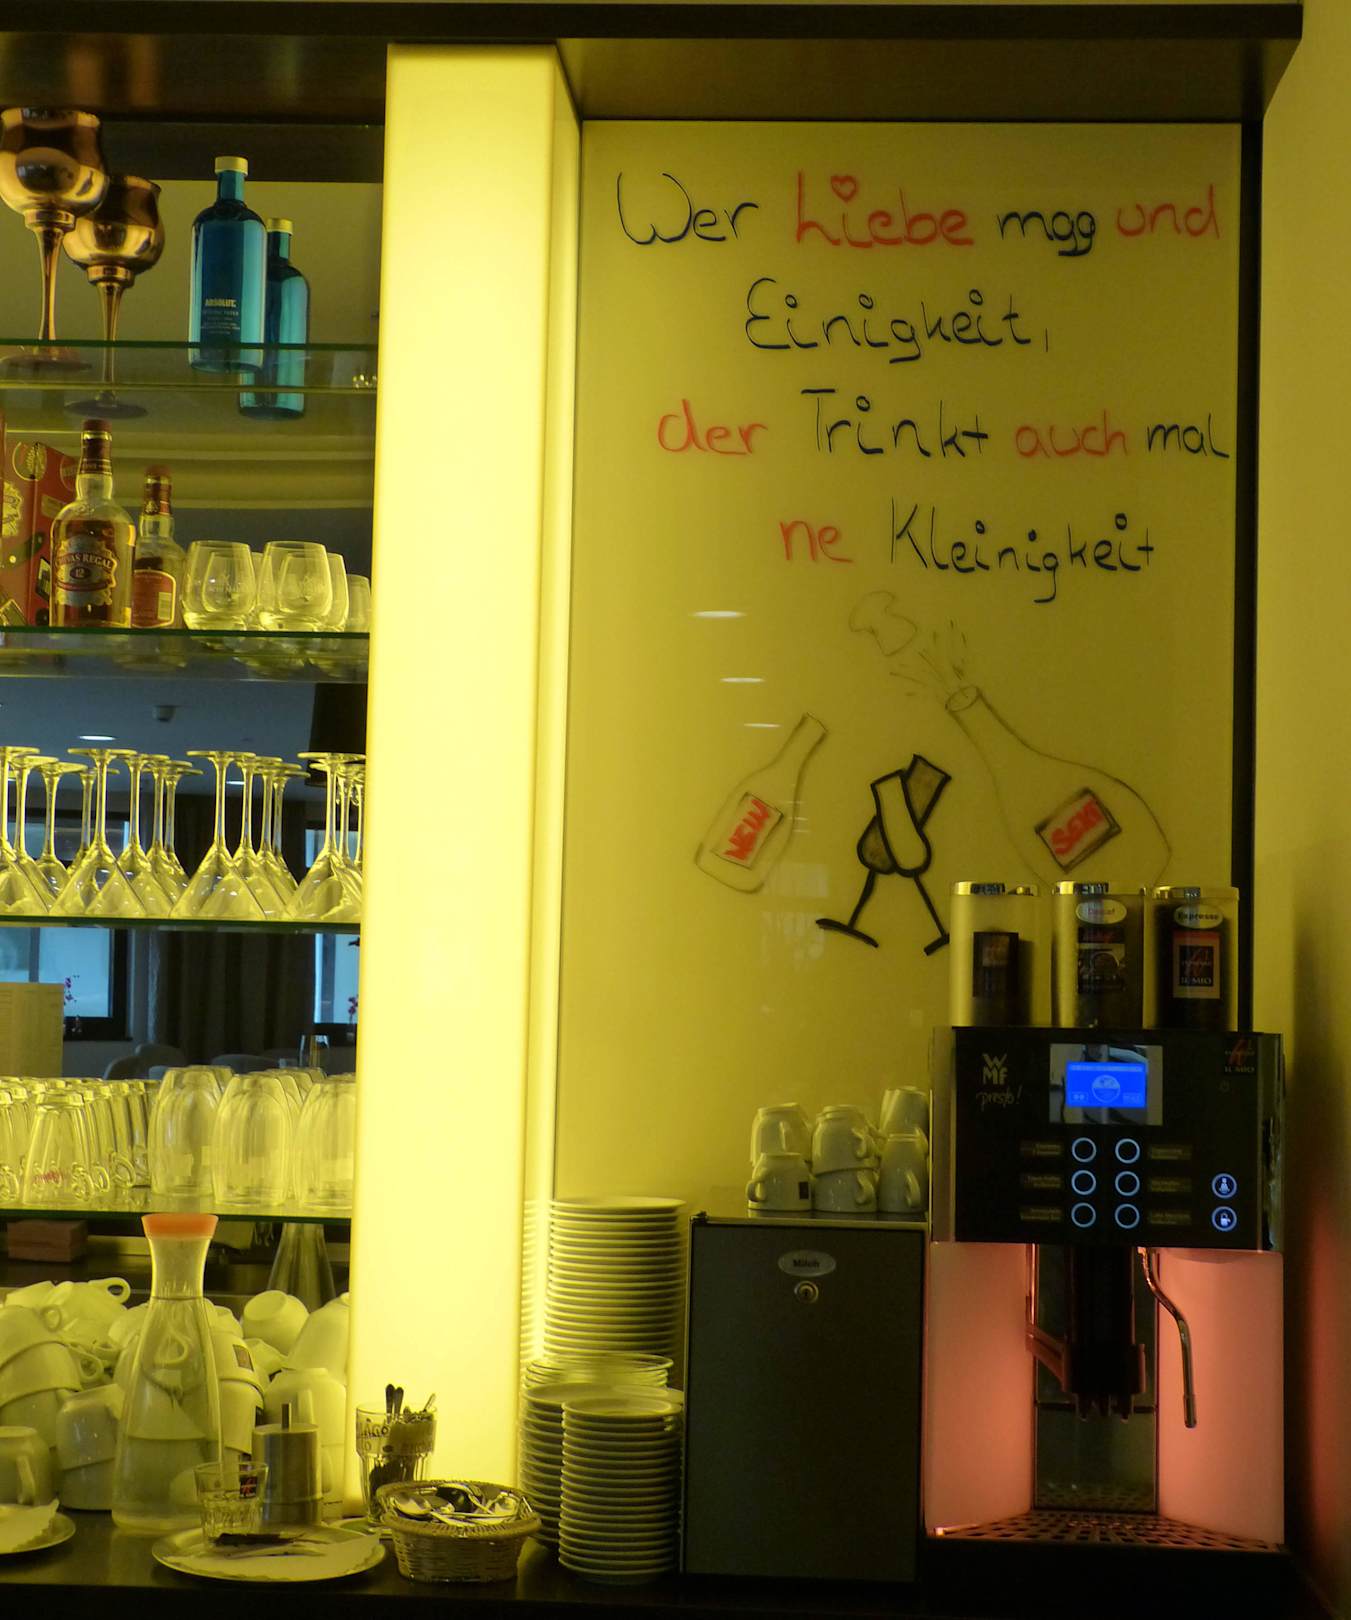 Wer Liebe mag und
Einigkeit,
der Trinkt auch mal
ne Kleinigkeit
ABSOLUT.
CHIVAS REGAL
12
SEKT
Decaf
Espresso
IL MIO
WMF
presto!
IL MIO
Milch